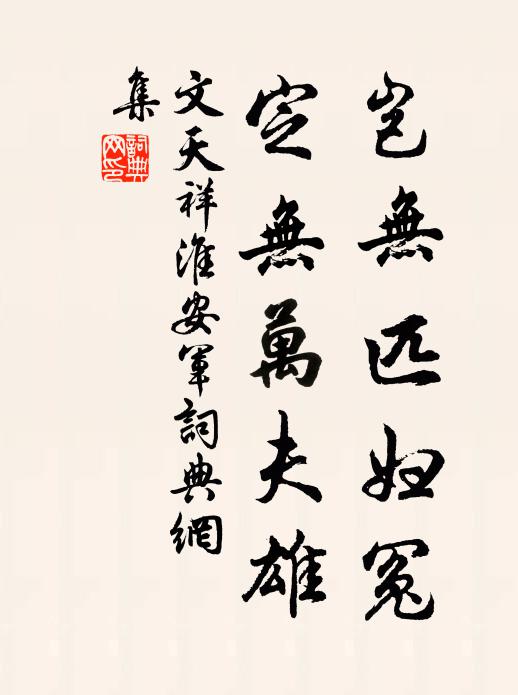 豈無匹妇冤
定無萬夫雄
文天祥淮安軍詞典網
集
詞典网印